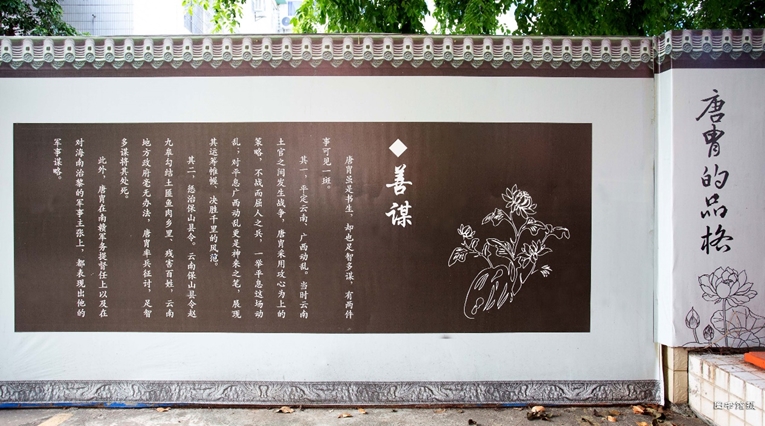 唐胄的品格
善谋
唐胄虽是书生，却也足智多谋，有两件
事可见一斑。
其一，平定云南、广西动乱。当时云南
土官之间发生战争，唐胄采用攻心为上的
策略，不战而屈人之兵，一举平息这场动
乱；对平息广西动乱更是神来之笔，展现
其运筹帷幄、决胜千里的风范。
其二，惩治保山县令。云南保山县令赵
九皋勾结土匪鱼肉乡里、残害百姓，云南
地方政府毫无办法，唐胄率兵征讨，足智
多谋将其处死。
此外，唐胄在南赣军务提督任上以及在
对海南治黎的军事主张上，都表现出他的
军事谋略。